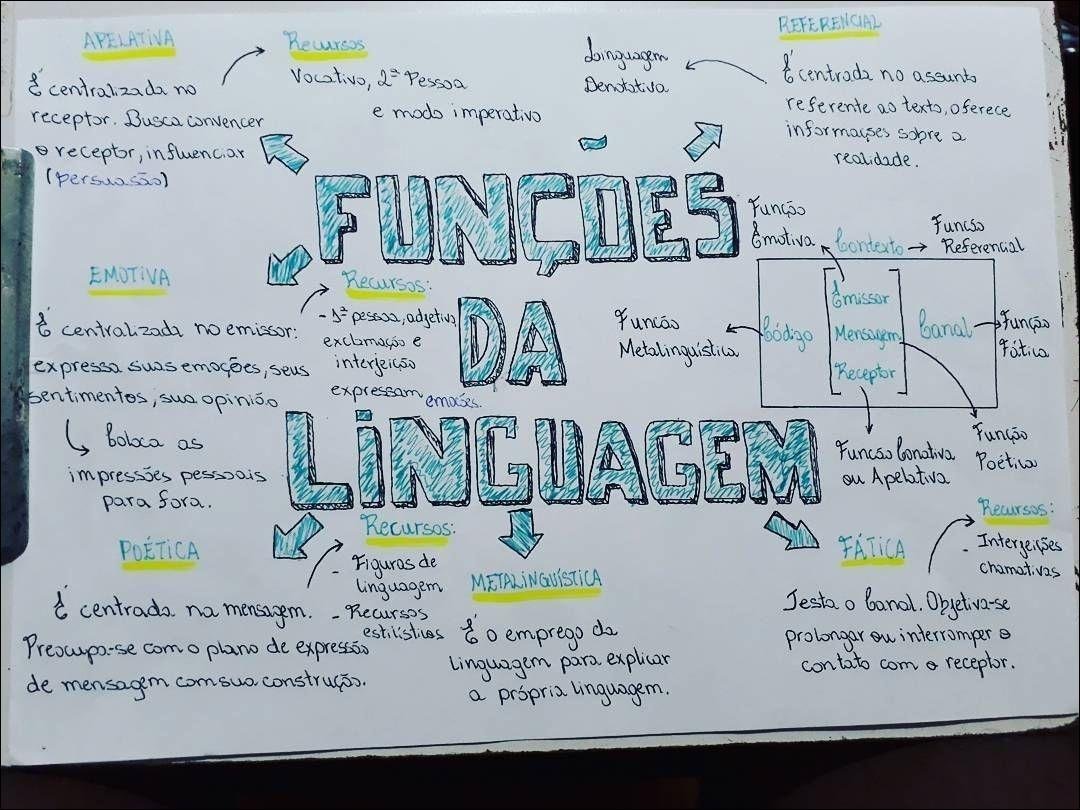 APELATIVA
É centralizada no
receptor. Busca convencer
o receptor, influenciar
(persuasão)
Recursos
Vocativo, 2ª Pessoa
e modo imperativo
REFERENCIAL
Linguagem
Denotativa
É centrada no assunto
referente ao texto, oferece
informações sobre a
realidade.
FUNÇÕES
DA
LINGUAGEM
EMOTIVA
É centralizada no emissor:
expressa suas emoções, seus
sentimentos, sua opinião
Coloca as
impressões pessoais
para fora.
Recursos:
- 1ª pessoa, adjetivo,
exclamação e
interjeição
expressam emoções.
Função
Emotiva
Contexto
Função
Referencial
Função
Metalinguística
Código
Emissor
Mensagem
Receptor
Canal
Função
Fática
Função Conativa
ou Apelativa
Função
Poética
POÉTICA
É centrada na mensagem.
Preocupa-se com o plano de expressão
de mensagem com sua construção.
Recursos:
- Figuras de
linguagem
- Recursos
estilísticos
METALINGUÍSTICA
É o emprego da
linguagem para explicar
a própria linguagem.
FÁTICA
Testa o Canal. Objetiva-se
prolongar ou interromper o
contato com o receptor.
Recursos:
- Interjeições
chamativas